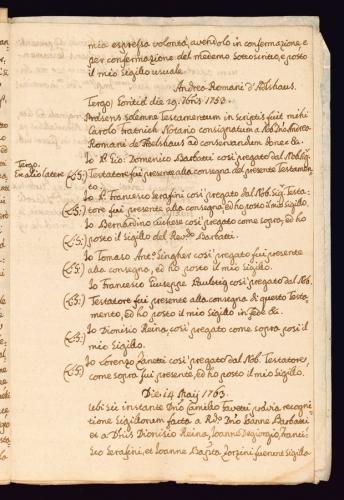 mia espressa volontà, avendolo in confermazione, e
per confermazione del medemo sottoscritto, e posto
il mio Sigillo usuale.
Andrea Romani d'Adelshaus.
Tergo/ Goritiæ die 29. 9bris 1752.
Præsens solemne Testamentum in scriptis fuit mihi
Carolo Notario consignatum a Nob: Dno Andrea
Romani de Adelshaus ad conservandum donec &a:
Tergo.
Ex alio latere
Io P. Gio: Domenico Barbatti così pregato dal Nob: Sig:
(LS:) Testatore fui presente alla consegna del presente Testamen-
to.
Io P. Francesco Serafini così pregato dal Nob: Sig: Testa-
(LS:) tore fui presente alla consegna ed ho posto il mio Sigillo.
Io Bernardino così pregato come sopra, ed ho
(LS:) posto il Sigillo del Revdo Barbatti.
Io Tomaso Ant: Singher così pregato fui presente
(LS:) alla consegna, ed ho posto il mio Sigillo.
Io Francesco Giuseppe così pregato dal Nob.
(LS:) Testatore fui presente alla consegna di questo Testa-
mento, ed ho posto il mio Sigillo in fede &a:
(LS:) Io Dionisio Reina, così pregato come sopra posi il
mio Sigillo.
(LS:) Io Lorenzo Zanetti così pregato dal Nob: Testatore
come sopra fui presente, ed ho posto il mio Sigillo.
Die 14 Maij 1763.
Ubi sic instante Dno Camillo prævia recogni-
tione Sigillorum facta a Rdo Dno Joanne Barbatti
et a Dnis Dionisio Reina, Joanne Degiorgio, Franci-
sco Serafini, et Joanne Bapsta Zorzini fuerunt Sigilla